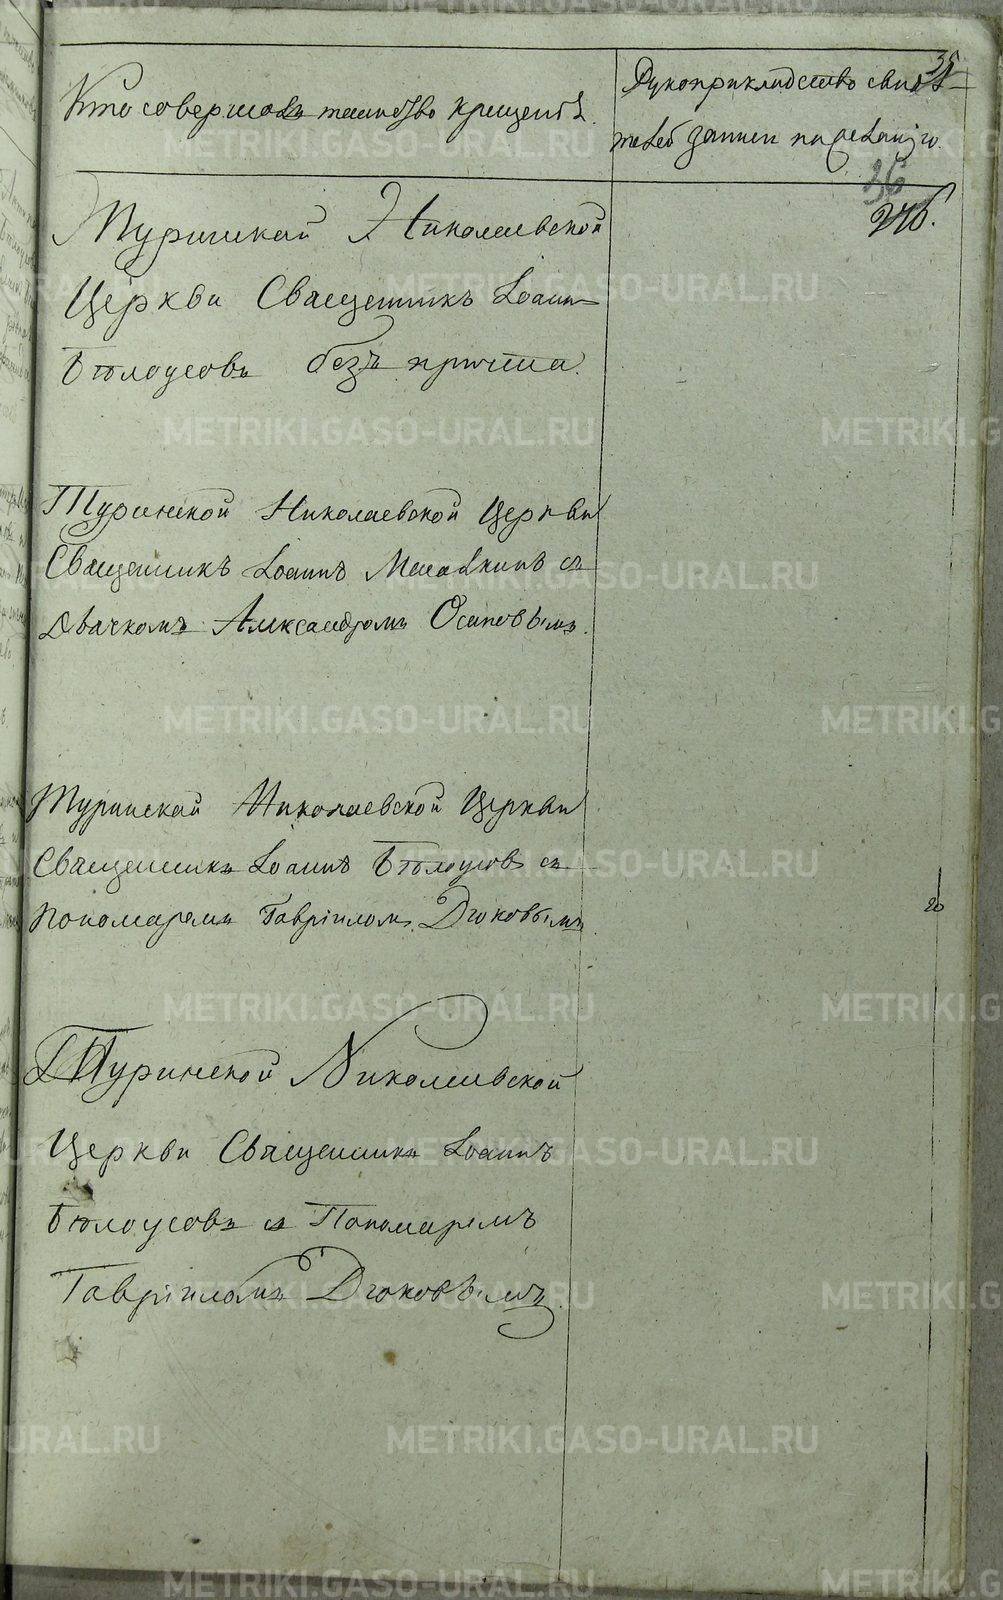 35
Кто совершалъ таинство крещенія.
Рукоприкладство свидѣ-
телей записи по желанію.
36
246.
Туринской Николаевской
Церкви Священникъ Іоаннъ
Бѣлоусовъ безъ причта.
Туринской Николаевской Церкви
Священникъ Іоаннъ съ
Дьячкомъ Александромъ Осиповымъ.
Туринской Николаевской Церкви
Священникъ Іоаннъ Бѣлоусовъ съ
Пономаремъ Гавріиломъ Дюковымъ.
20
Туринской Николаевской
Церкви Священникъ Іоаннъ
Бѣлоусовъ съ Пономаремъ
Гавріиломъ Дюковымъ.
METRIKI.GASO-URAL.RU